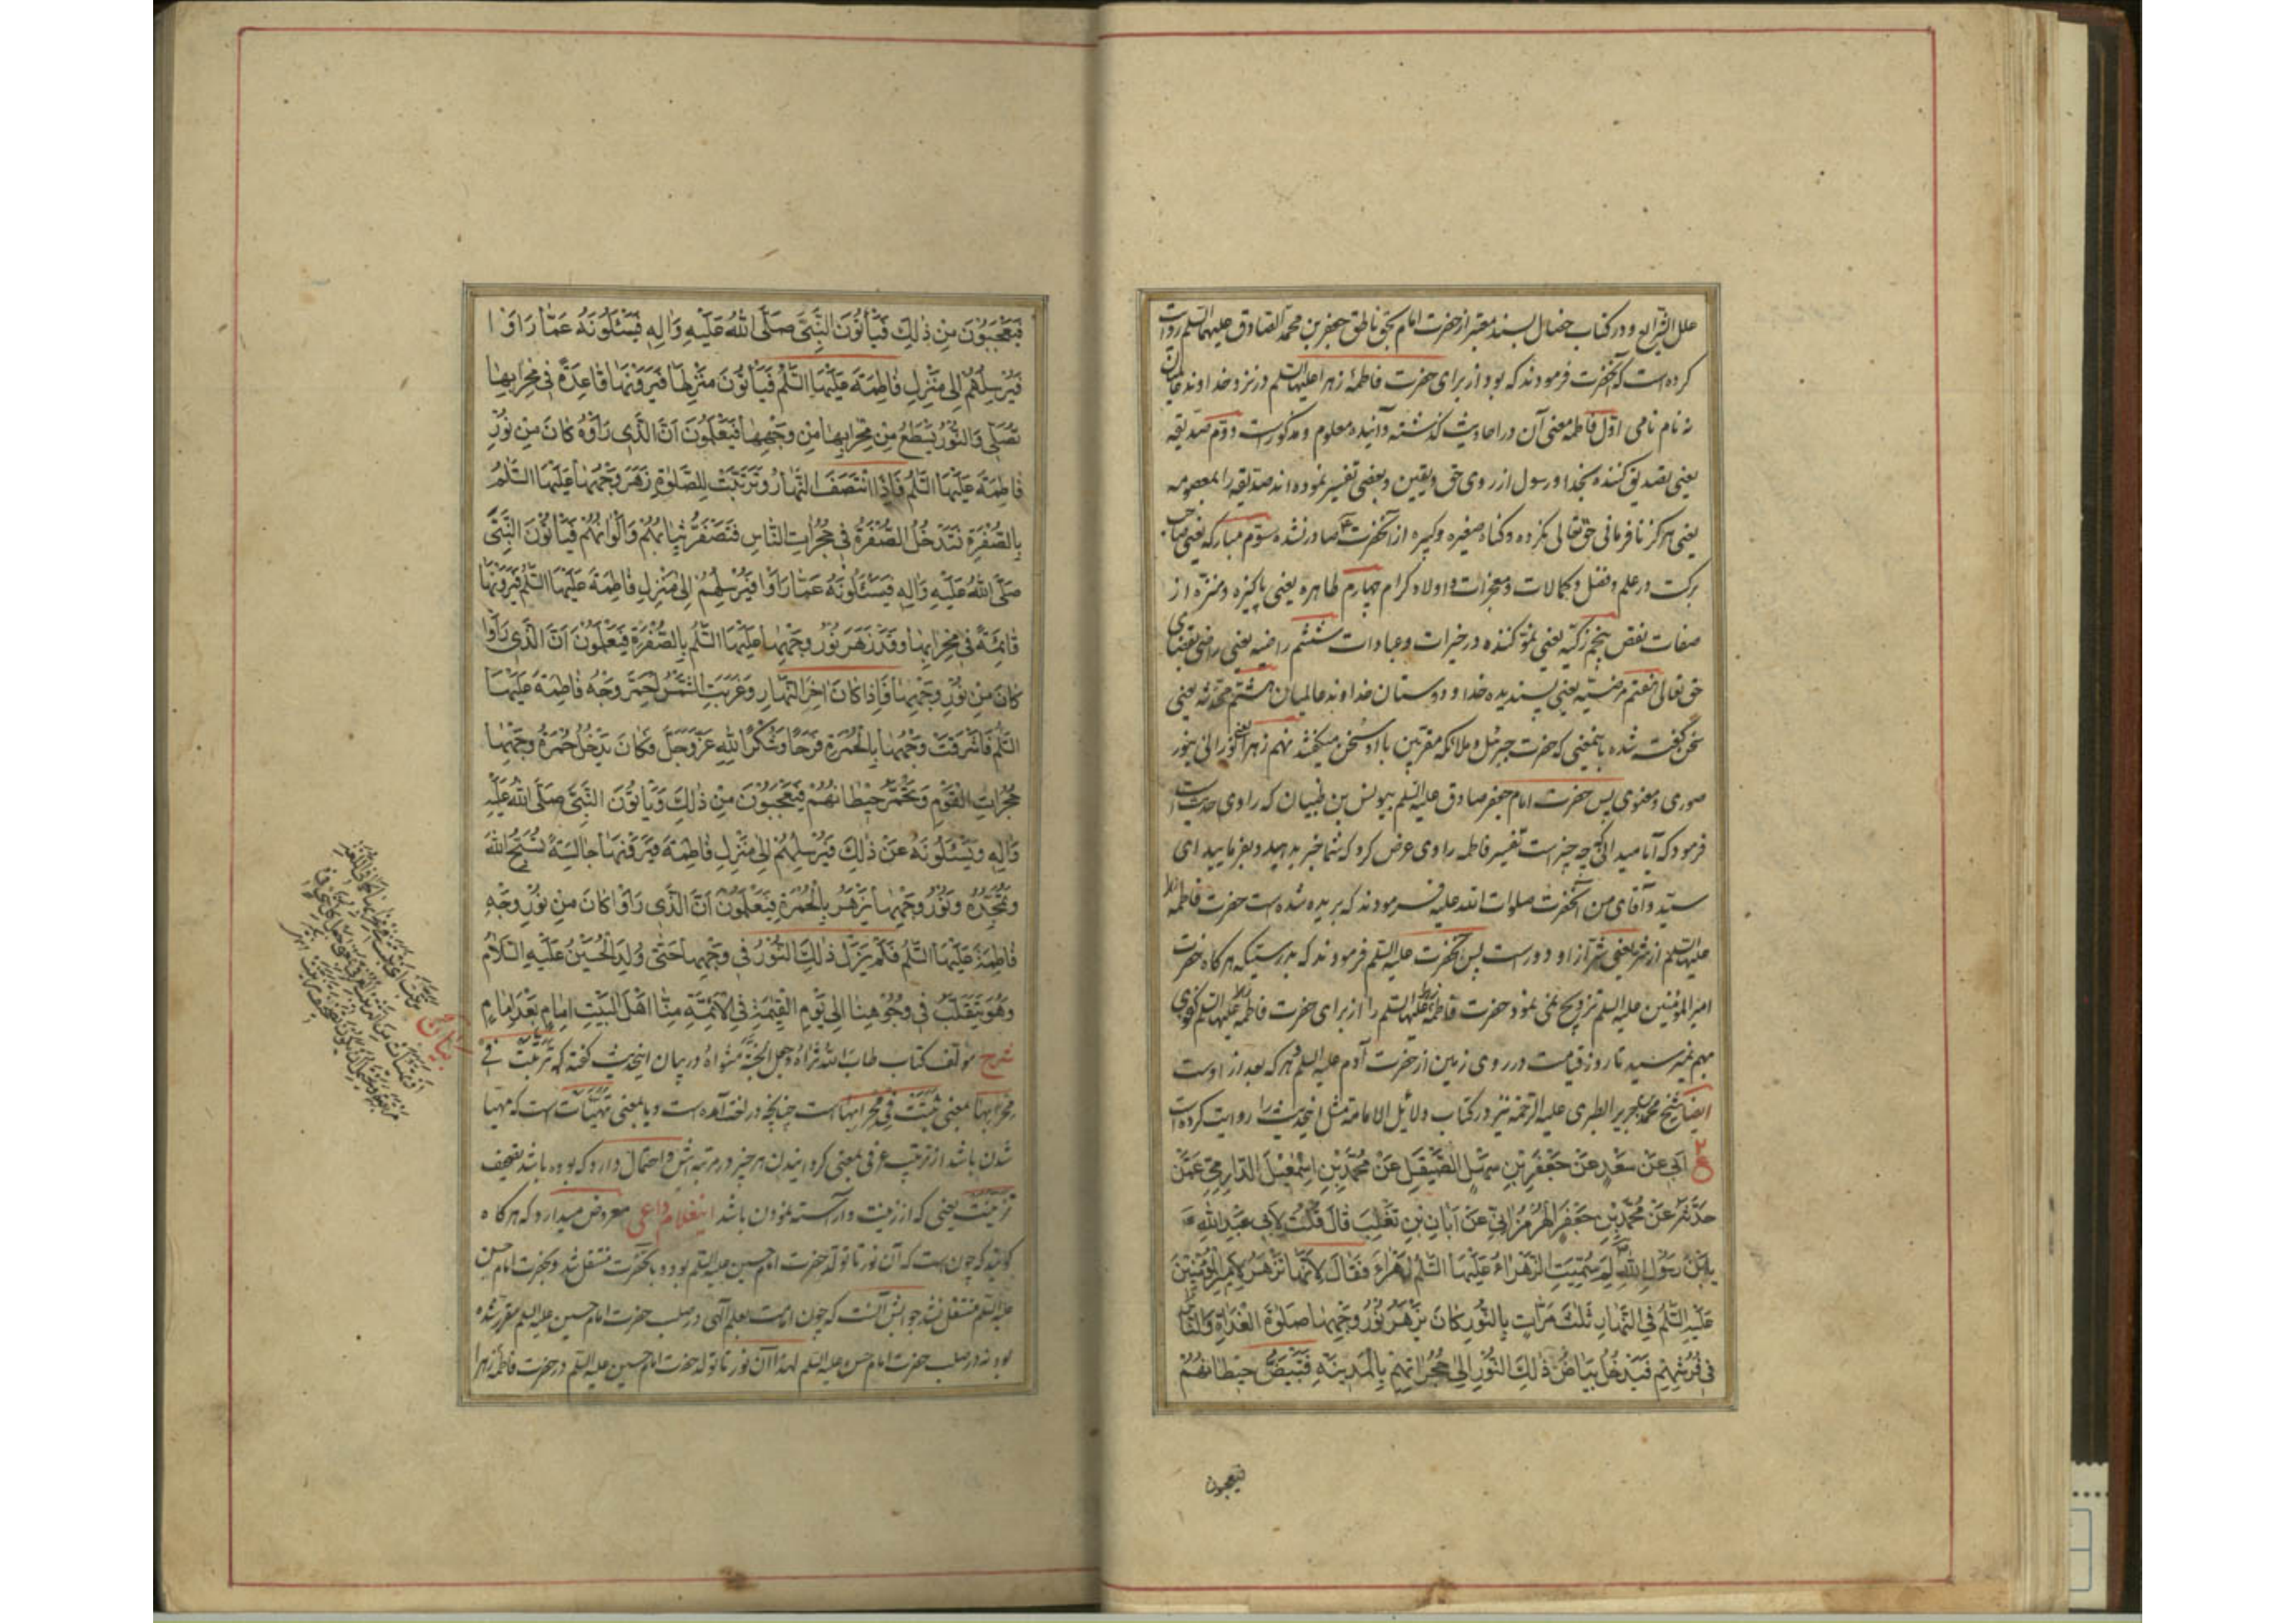 علل الشرایع و در کتاب خصال بسند معتبر از حضرت امام بحق ناطق جعفر بن محمد الصادق علیهما السلم روایت
کرده است که آنحضرت فرمودند که بود از برای حضرت فاطمهٔ زهرا علیها السلم در نزد خداوند عالمیان
نه نام نامی اوّل فاطمه معنی آن در احادیث گذشته و آینده معلوم و مذکور است دوّم صدّیقه
یعنی تصدیق کننده بخدا و رسول از روی حق و یقین و بعضی تفسیر نموده اند صدیقه را بمعصومه
یعنی هرگز نافرمانی حق تعالی نکرده و گناه صغیره و کبیره از آنحضرت صادر نشده سوّم مبارکه یعنی صاحب
برکت در علم و فضل و کمالات و معجزات و اولاد کرام چهارم طاهره یعنی پاکیزه و منزّه از
صفات نقص پنجم زکیّه یعنی نموّ کننده در خیرات و عبادات ششم راضیه یعنی راضی بقضای
حق تعالی هفتم مرضیّه یعنی پسندیده خدا و دوستان خداوند عالمیان هشتم محدّثه یعنی
سخن گفته شده باینمعنی که حضرت جبرئیل و ملائکه مقربین با او سخن میگفتند نهم زهرا یعنی نورانی بنور
صوری و معنوی پس حضرت امام جعفر صادق علیه السلم بیونس بن ظبیان که راوی حدیث است
فرمود که آیا میدانی که چه چیز است تفسیر فاطمه راوی عرض کرد که شما خبر بدهید و بفرمایید ای
سیّد و آقای من آنحضرت صلوات الله علیه فرمودند که بریده شده است حضرت فاطمه
علیها السلم از شر یعنی شرّ از او دور است پس آنحضرت علیه السلم فرمودند که بدرستیکه هرگاه حضرت
امیر المؤمنین علیه السلم تزویج نمی نمود حضرت فاطمه علیها السلم را از برای حضرت فاطمه علیها السلم کفوی
بهم نمیرسید تا روز قیامت در روی زمین از حضرت آدم علیه السلم و هر که بعد از اوست
ایضا شیخ محمد بن جریر الطبری علیه الرحمة نیز در کتاب دلائل الامامة مثل اینحدیث را روایت کرده است
۲ ع اَبی عَنْ سَعْدٍ عَنْ جَعْفَرِ بْنِ سَهْلِ الصَّیْقَلِ عَنْ مُحَمَّدِ بْنِ اِسْمٰعیلَ الدّارِمِیِّ عَمَّنْ
حَدَّثَهُ عَنْ مُحَمَّدِ بْنِ جَعْفَرٍ الْهُرْمُزٰانِیِّ عَنْ اَبانِ بْنِ تَغْلِبَ قٰالَ قُلْتُ لِاَبی عَبْدِ اللهِ ع
یَا بْنَ رَسُولِ اللهِ لِمَ سُمِّیَتِ الزَّهْرٰاءُ عَلَیْهَا السَّلٰمُ زَهْرٰاءَ فَقٰالَ لِاَنَّهٰا تَزْهَرُ لِاَمیرِ الْمُؤْمِنینَ
عَلَیْهِ السَّلٰمُ فِی النَّهٰارِ ثَلٰثَ مَرّٰاتٍ بِالنُّورِ کٰانَ یَزْهَرُ نُوْرُ وَجْهِهٰا صَلٰوةَ الْغَدٰاةِ وَالنّٰاسُ
فی فُرُشِهِمْ فَیَدْخُلُ بَیٰاضُ ذٰلِکَ النُّوْرِ اِلٰی حُجُرٰاتِهِمْ بِالْمَدینَةِ فَتَبْیَضُّ حیطٰانُهُمْ
فیعجبون
فَیَعْجَبُوْنَ مِنْ ذٰلِکَ فَیَأْتُوْنَ النَّبِیَّ صَلَّی اللهُ عَلَیْهِ وَاٰلِهِ فَیَسْئَلُونَهُ عَمّٰا رَاَوْا
فَیُرْسِلُهُمْ اِلٰی مَنْزِلِ فٰاطِمَةَ عَلَیْهَا السَّلٰمُ فَیَأْتُوْنَ مَنْزِلَهٰا فَیَرَوْنَهٰا قٰاعِدَةً فی مِحْرٰابِهٰا
تُصَلّی وَالنُّوْرُ یَسْطَعُ مِنْ مِحْرٰابِهٰا مِنْ وَجْهِهٰا فَیَعْلَمُوْنَ اَنَّ الَّذی رَاَوْهُ کٰانَ مِنْ نُوْرِ
فٰاطِمَةَ عَلَیْهَا السَّلٰمُ فَاِذَا انْتَصَفَ النَّهٰارُ وَتَرَتَّبَتْ لِلصَّلٰوةِ زَهَرَ وَجْهُهٰا عَلَیْهَا السَّلٰمُ
بِالصُّفْرَةِ فَتَدْخُلُ الصُّفْرَةُ فی حُجُرٰاتِ النّٰاسِ فَتَصْفَرُّ ثِیٰابُهُمْ وَاَلْوٰانُهُمْ فَیَأْتُوْنَ النَّبِیَّ
صَلَّی اللهُ عَلَیْهِ وَاٰلِهِ فَیَسْئَلُونَهُ عَمّٰا رَاَوْا فَیُرْسِلُهُمْ اِلٰی مَنْزِلِ فٰاطِمَةَ عَلَیْهَا السَّلٰمُ فَیَرَوْنَهٰا
قٰائِمَةً فی مِحْرٰابِهٰا وَقَدْ زَهَرَ نُوْرُ وَجْهِهٰا عَلَیْهَا السَّلٰمُ بِالصُّفْرَةِ فَیَعْلَمُوْنَ اَنَّ الَّذی رَاَوْا
کٰانَ مِنْ نُوْرِ وَجْهِهٰا فَاِذٰا کٰانَ اٰخِرُ النَّهٰارِ وَغَرَبَتِ الشَّمْسُ احْمَرَّ وَجْهُ فٰاطِمَةَ عَلَیْهَا
السَّلٰمُ فَاَشْرَقَتْ وَجْهُهٰا بِالْحُمْرَةِ فَرَحًا وَشُکْرًا لِلّٰهِ عَزَّوَجَلَّ فَکٰانَ یَدْخُلُ حُمْرَةُ وَجْهِهٰا
حُجُرٰاتِ الْقَوْمِ وَتَحْمَرُّ حیطٰانُهُمْ فَیَعْجَبُوْنَ مِنْ ذٰلِکَ وَیَأْتُوْنَ النَّبِیَّ صَلَّی اللهُ عَلَیْهِ
وَاٰلِهِ وَیَسْئَلُونَهُ عَنْ ذٰلِکَ فَیُرْسِلُهُمْ اِلٰی مَنْزِلِ فٰاطِمَةَ فَیَرَوْنَهٰا جٰالِسَةً تُسَبِّحُ اللهَ
وَتُمَجِّدُهُ وَنُوْرُ وَجْهِهٰا یَزْهَرُ بِالْحُمْرَةِ فَیَعْلَمُوْنَ اَنَّ الَّذی رَاَوْا کٰانَ مِنْ نُوْرِ وَجْهِ
فٰاطِمَةَ عَلَیْهَا السَّلٰمُ فَلَمْ یَزَلْ ذٰلِکَ النُّوْرُ فی وَجْهِهٰا حَتّٰی وُلِدَ الْحُسَیْنُ عَلَیْهِ السَّلٰامُ
وَهُوَ یَتَقَلَّبُ فی وُجُوْهِنٰا اِلٰی یَوْمِ الْقِیٰمَةِ فِی الْاَئِمَّةِ مِنّٰا اَهْلَ الْبَیْتِ اِمٰامٍ بَعْدَ اِمٰامٍ
شرح مؤلف کتاب طاب الله ثراه وجعل الجنّة مثواه در بیان اینحدیث گفته که تَرَتَّبَتْ فی
مِحْرٰابِهٰا بمعنی ثَبَتَتْ فی مِحْرٰابِهٰا است چنانچه در لغت آمده است و یا بمعنی تَهَیَّأَتْ است که مهیّا
شدن باشد از ترتیب عرفی بمعنی گردانیدن هر چیز در مرتبه اش و احتمال دارد که بوده باشد تصحیف
تَزَیَّنَتْ یعنی که از زینت و آراسته نمودن باشد اینغلام داعی معروض میدارد که هرگاه
گویند که چون است که آن نور تا تولد حضرت امام حسین علیه السلم بوده و بآنحضرت منتقل شد و بحضرت امام حسن
علیه السلم منتقل نشد جوابش آنست که چون امامت بعلم آلهی در صلب حضرت امام حسین علیه السلم مقرر شده
بود نه در صلب حضرت امام حسن علیه السلم لهذا آن نور تا تولد حضرت امام حسین علیه السلم در حضرت فاطمه زهرا